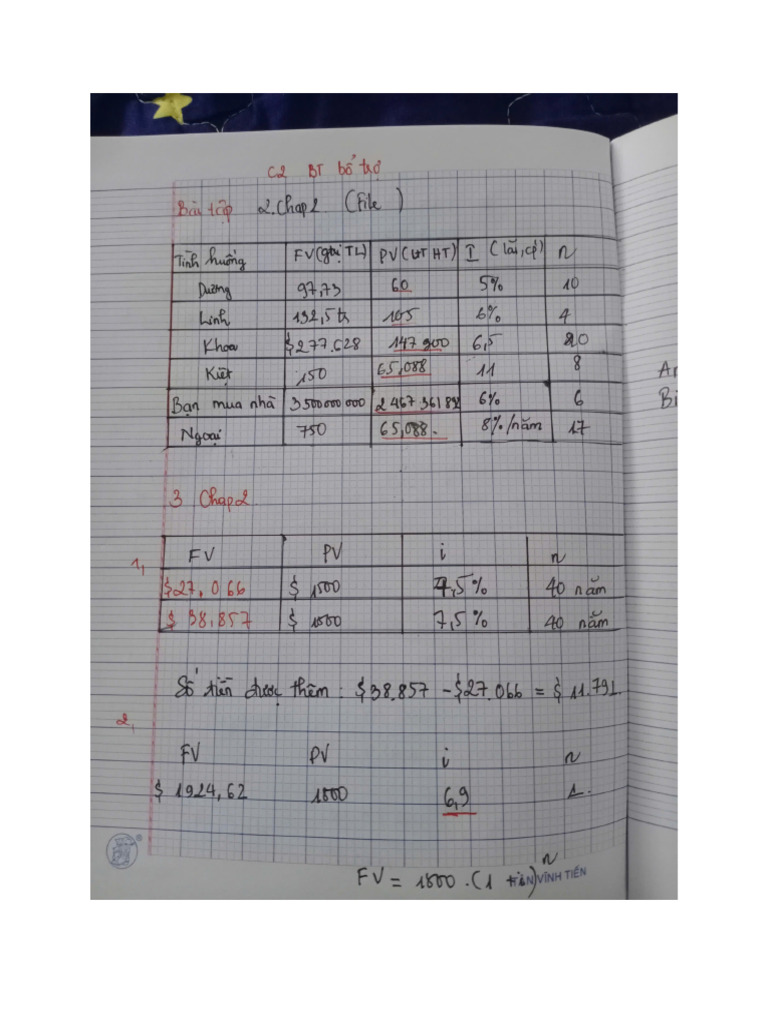 C2 BT bổ trợ
Bài tập 2.Chap2 (File)
Tình huống FV(gtrị TL) PV( HT) I (lãi,cp) n
Dương 97,73 60 5% 10
Linh 132,5tr 105 6% 4
Khoa $277.628 147 900 6,5 20
Kiệt 150 65,088 11 8
Bạn mua nhà 3500000000 6% 6
Ngoại 750 65,088. 8%/năm 17
3 Chap2
1, FV PV i n
$27,066 $ 1500 7,5% 40 năm
$ 38,857 $ 7,5% 40 năm
Số tiền được thêm : $38.857 - $27.066 = $ 11.791.
2,
FV PV i n
$ 1924,62 6,9 1.
FV = .(1 + i)n
VĨNH TIẾN
Ar
Bi